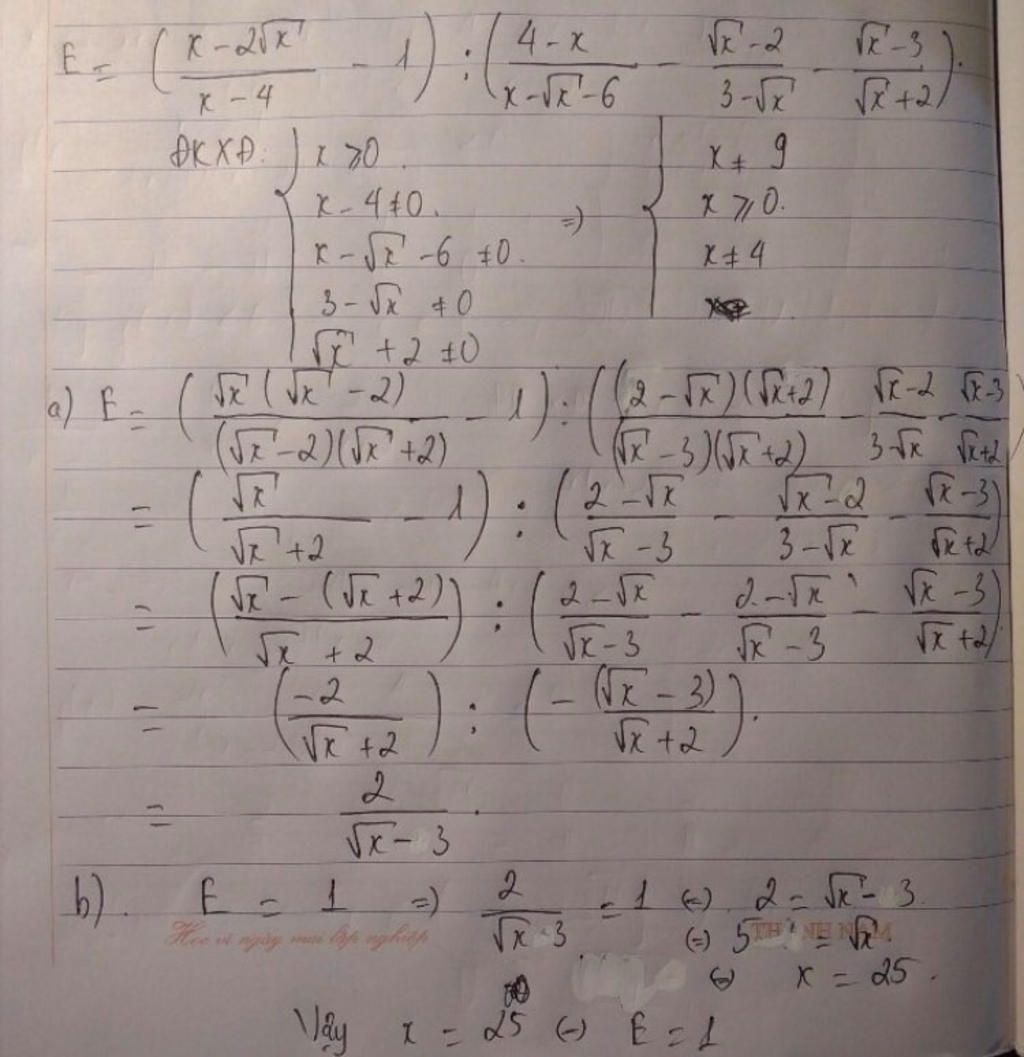 E = ( (x - 2√x)/(x - 4) - 1 ) : ( (4 - x)/(x - √x - 6) - (√x - 2)/(3 - √x) - (√x - 3)/(√x + 2) ).
ĐKXĐ: { x ⩾ 0. ; x - 4 ≠ 0. ; x - √x - 6 ≠ 0. ; 3 - √x ≠ 0 ; √x + 2 ≠ 0 => { x ≠ 9 ; x ⩾ 0. ; x ≠ 4
a) E = ( √x (√x - 2)/((√x - 2)(√x + 2)) - 1 ) : ( (2 - √x)(√x + 2)/((√x - 3)(√x + 2)) - (√x - 2)/(3 - √x) - (√x - 3)/(√x + 2) )
= ( √x/(√x + 2) - 1 ) : ( (2 - √x)/(√x - 3) - (√x - 2)/(3 - √x) - (√x - 3)/(√x + 2) )
= ( (√x - (√x + 2))/(√x + 2) ) : ( (2 - √x)/(√x - 3) - (2 - √x)/(√x - 3) - (√x - 3)/(√x + 2) )
= ( -2/(√x + 2) ) : ( - (√x - 3)/(√x + 2) ).
= 2/(√x - 3) .
b). E = 1 => 2/(√x - 3) = 1 (=) 2 = √x - 3.
Học vì ngày mai lập nghiệp
(=) 5 = √x.
(=) x = 25.
Vậy x = 25 (=) E = 1